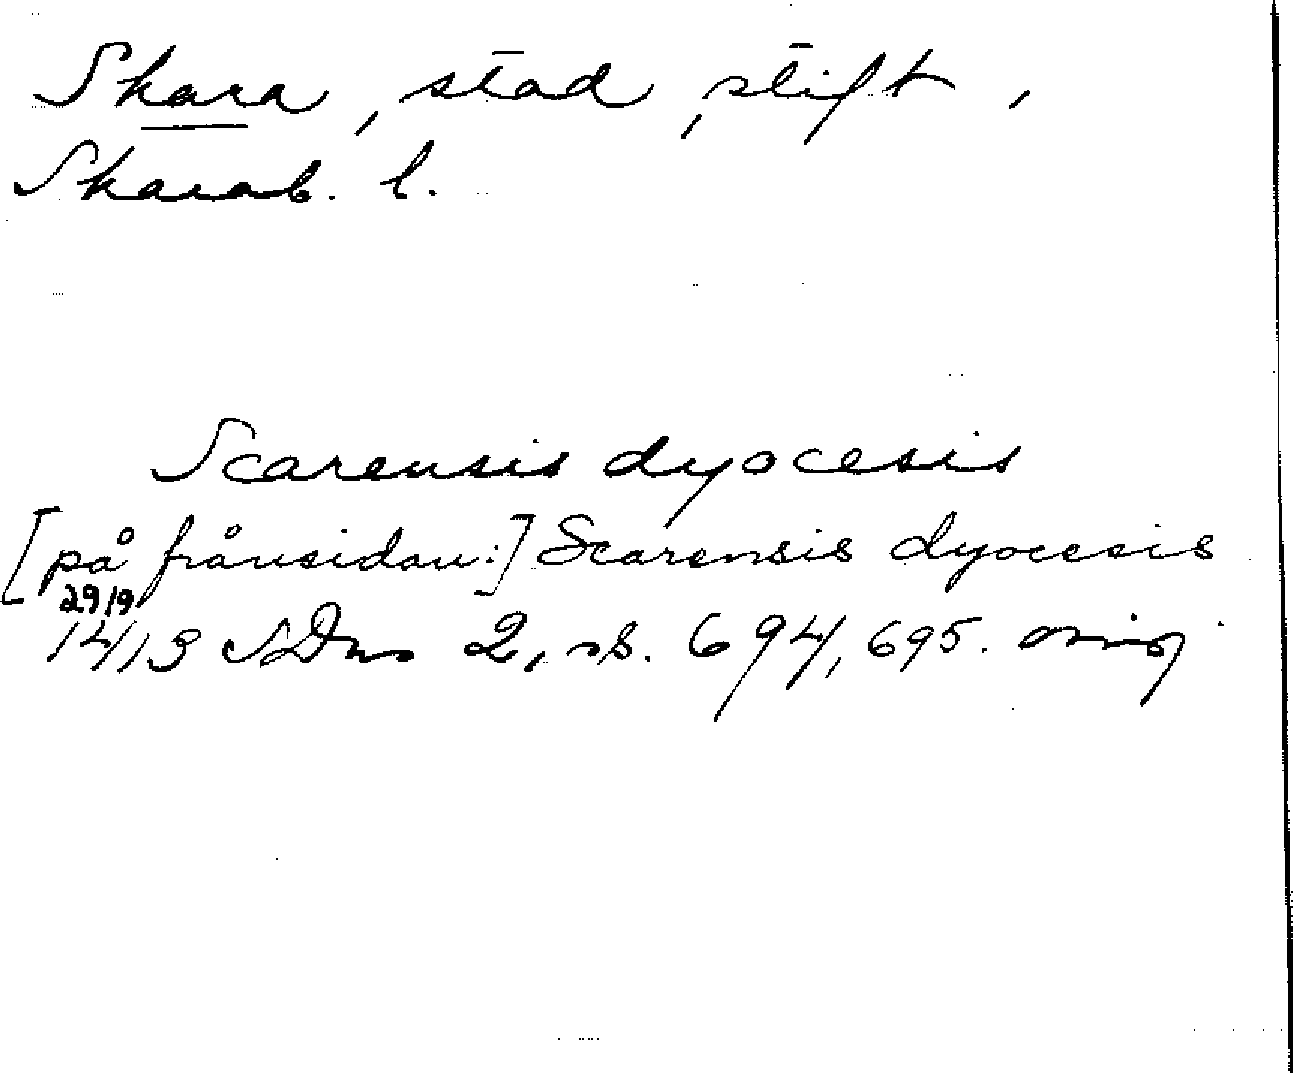 Skara, stad, stift,
Skarab. l.
Scarensis dyocesis
[på frånsidan:] Scarensis dyocesis
29/9
1413 SDns 2, sb. 694, 695. orig.